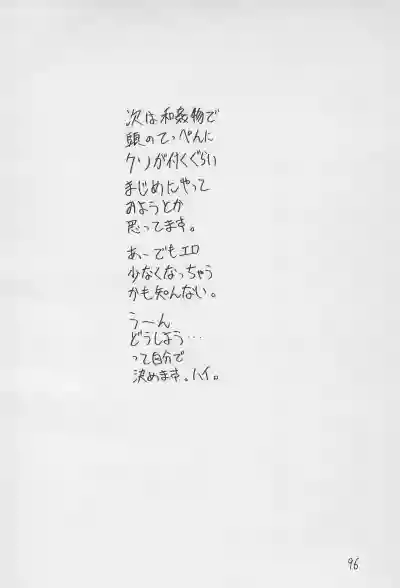 次は和姦物で
頭のてっぺんに
クソが付くぐらい
まじめにやって
みようとか
思ってます。
あーでもエロ
少なくなっちゃう
かも知んない。
うーーん
どうしよう…
って自分で
決めます。ハイ。
96